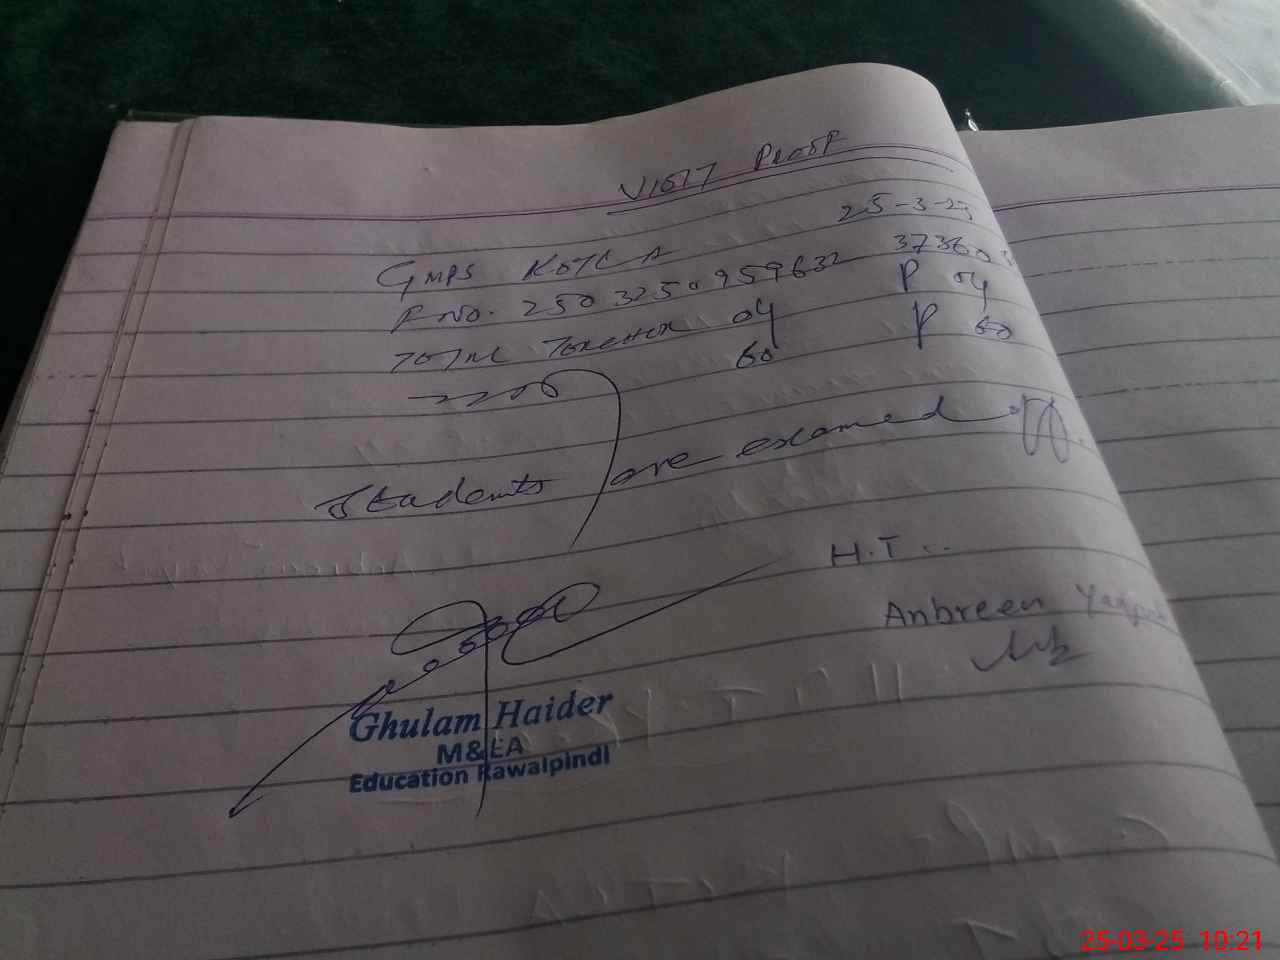 VISIT PROOF
25-3-25
GMPS KOTLA 37360
P NO. 2503250959632 P 04
TOTAL TEACHER 04 P 60
60
Students are examed off.
H.T..
Anbreen
Ghulam Haider
M&EA
Education Rawalpindi
25-03-25 10:21